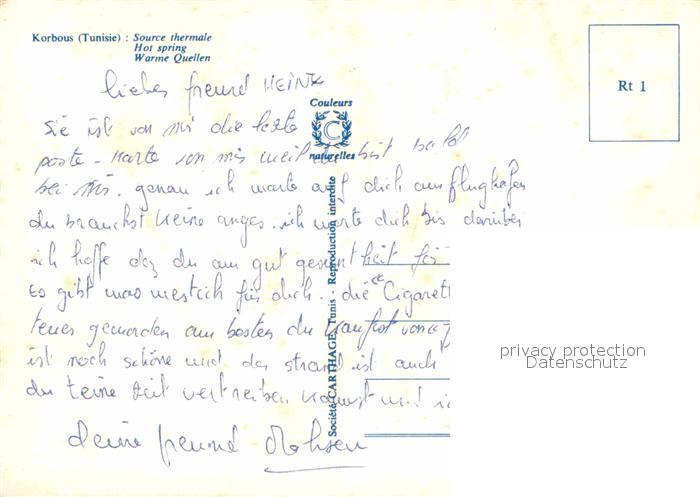 Korbous (Tunisie) : Source thermale
Hot spring
Warme Quellen
Rt 1
Couleurs
C
naturelles
Société CARTHAGE, Tunis - Reproduction interdite
liebes freund HEINZ
Sie ist von mir die
poste - Karte von mir weil du bist bald
bei mir. genau ich warte auf dich am flughafen
du brauchst keine anges. ich warte dich bis darüber
ich hoffe daz du am gut gesuntheit
Es gibt was für dich. die Cigarett
teues geworden am besten du kaufst von
ist noch schöne und das strand ist auch
du teine Zeit vertreiben kannst und
deine freund Mohsen
privacy protection
Datenschutz